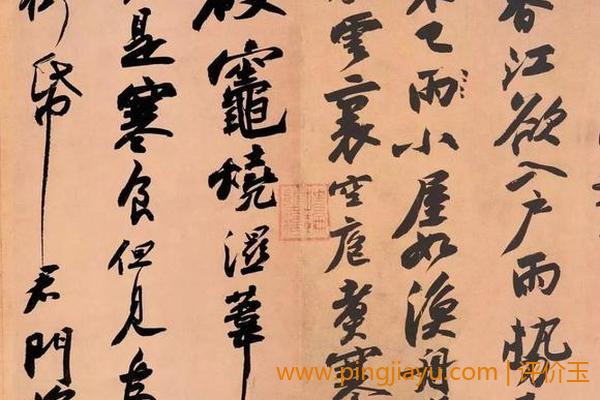 春江欲入戶雨勢
不已雨小屋如漁舟
雲裏空庖煮寒
破竈燒濕葦
是寒食但見烏
銜帋君門深
www.pingjiayu.com | 评价玉